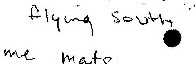 flying south
me mate